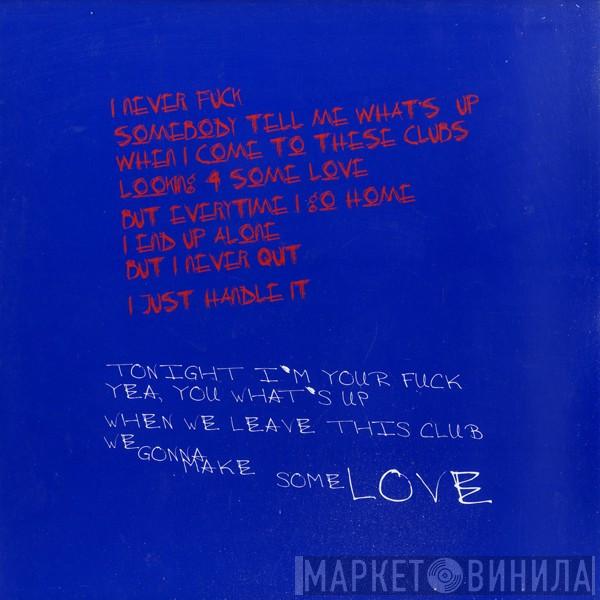 I NEVER FUCK
SOMEBODY TELL ME WHAT'S UP
WHEN I COME TO THESE CLUBS
LOOKING 4 SOME LOVE
BUT EVERYTIME I GO HOME
I END UP ALONE
BUT I NEVER QUIT
I JUST HANDLE IT
TONIGHT I'M YOUR FUCK
YEA, YOU WHAT'S UP
WHEN WE LEAVE THIS CLUB
WE GONNA MAKE SOME LOVE
МАРКЕТ ВИНИЛА